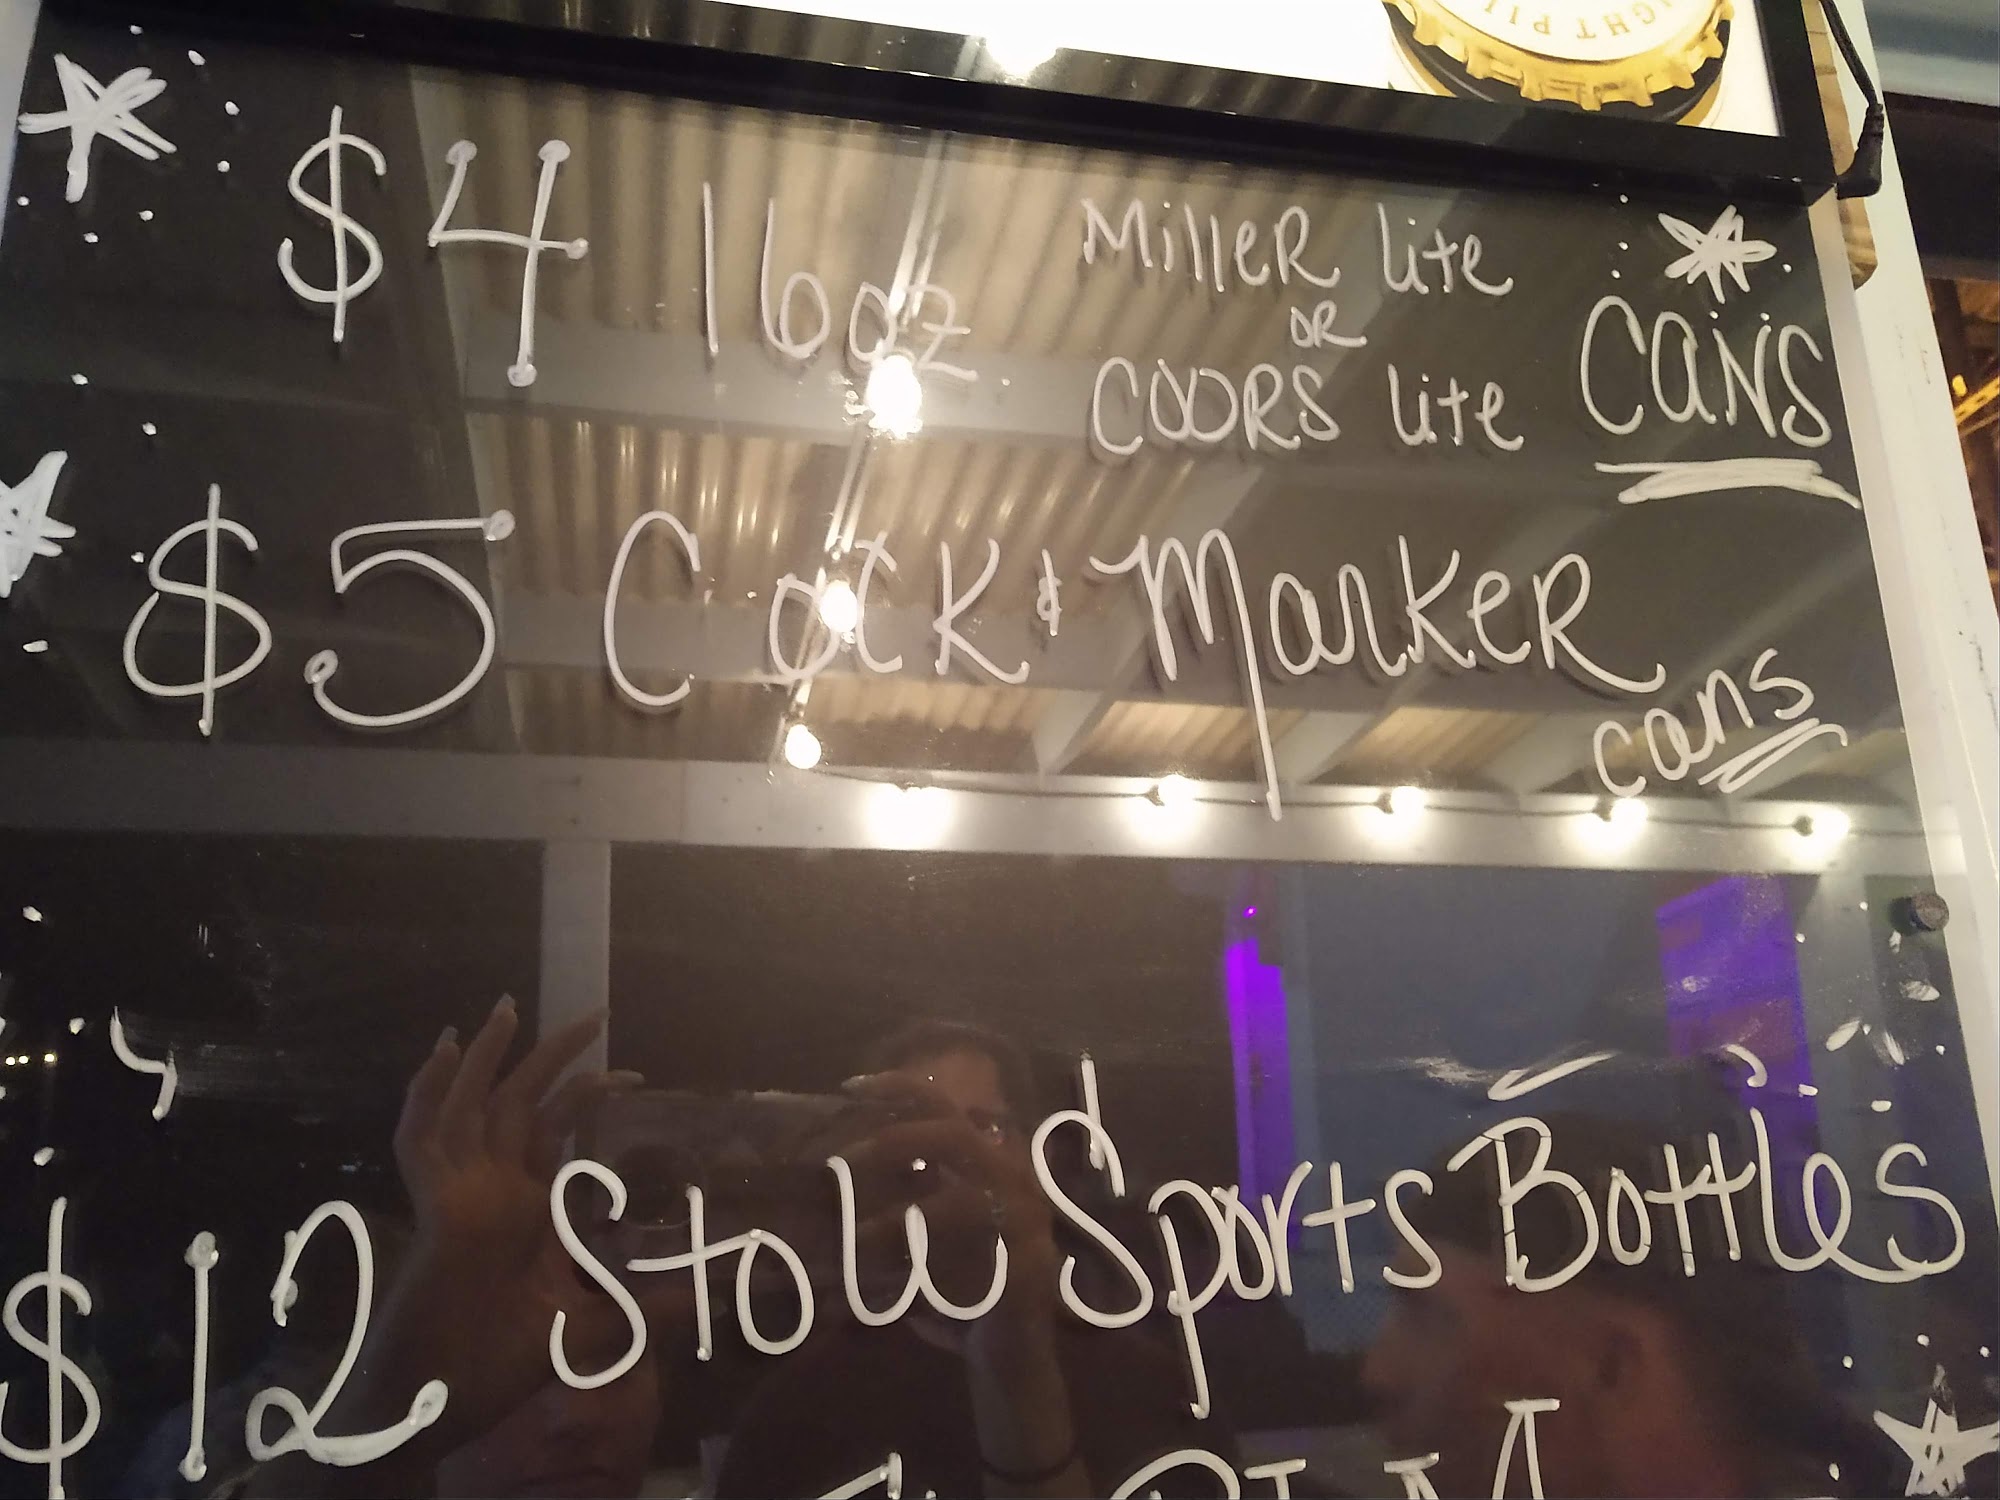 $4 16oz Miller lite or Coors lite Cans
$5 Cock & Marker cans
$12 Stoli Sports Bottles